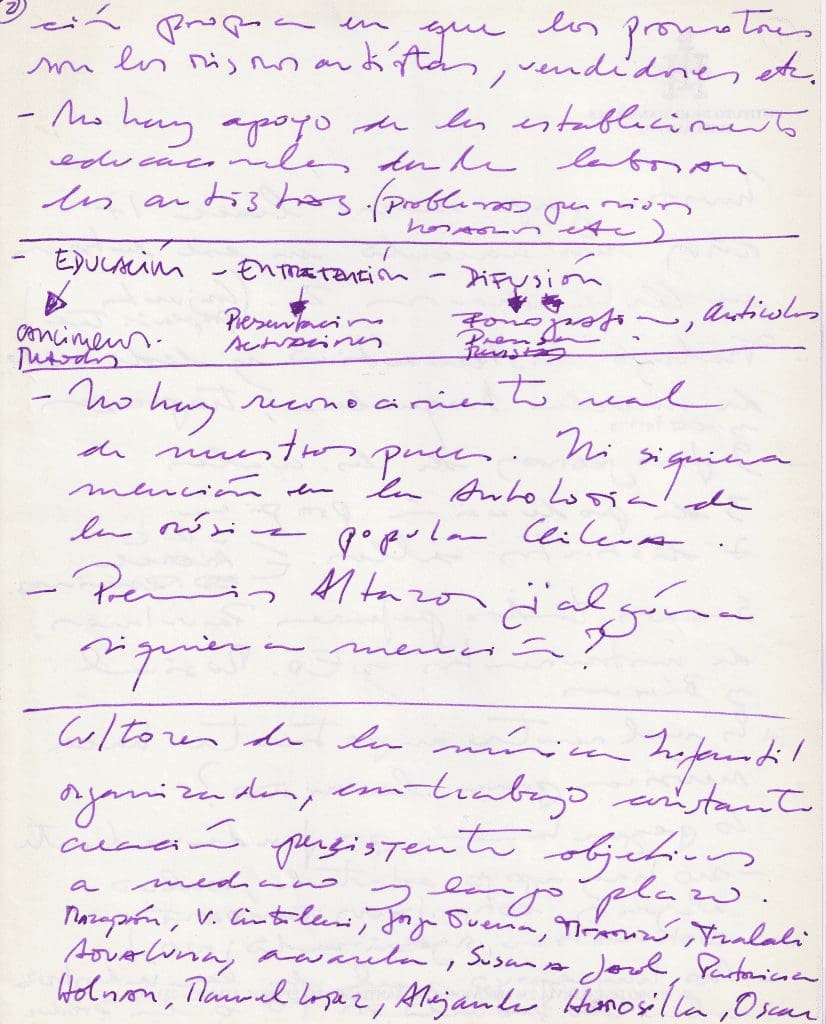 2)
ción propia en que los promotores
son los mismos artistas, vendedores etc.
- No hay apoyo de los establecimiento
educacionales donde laboran
los artistas. (problemas permisos
horarios etc)
- EDUCACIÓN - ENTRETENCIÓN - DIFUSIÓN
Presentaciones Fonografía, Artículos
Métodos Actuaciones Prensa
Revistas
- No hay reconocimiento real
de nuestros pares. Ni siquiera
mención en la Antología de
la música popular Chilena.
- Premios Altazor ¿alguna
siquiera mención?
Cultores de la música Infantil
organizados, con trabajo constante
creación persistente objetivos
a mediano y largo plazo.
Mazapán, V. Cintolesi, Jorge Guerra, Mazapán, Tralalí
Acualuna, acuarela, Susana
Manuel Lopez, Alejandro Hermosilla, Oscar